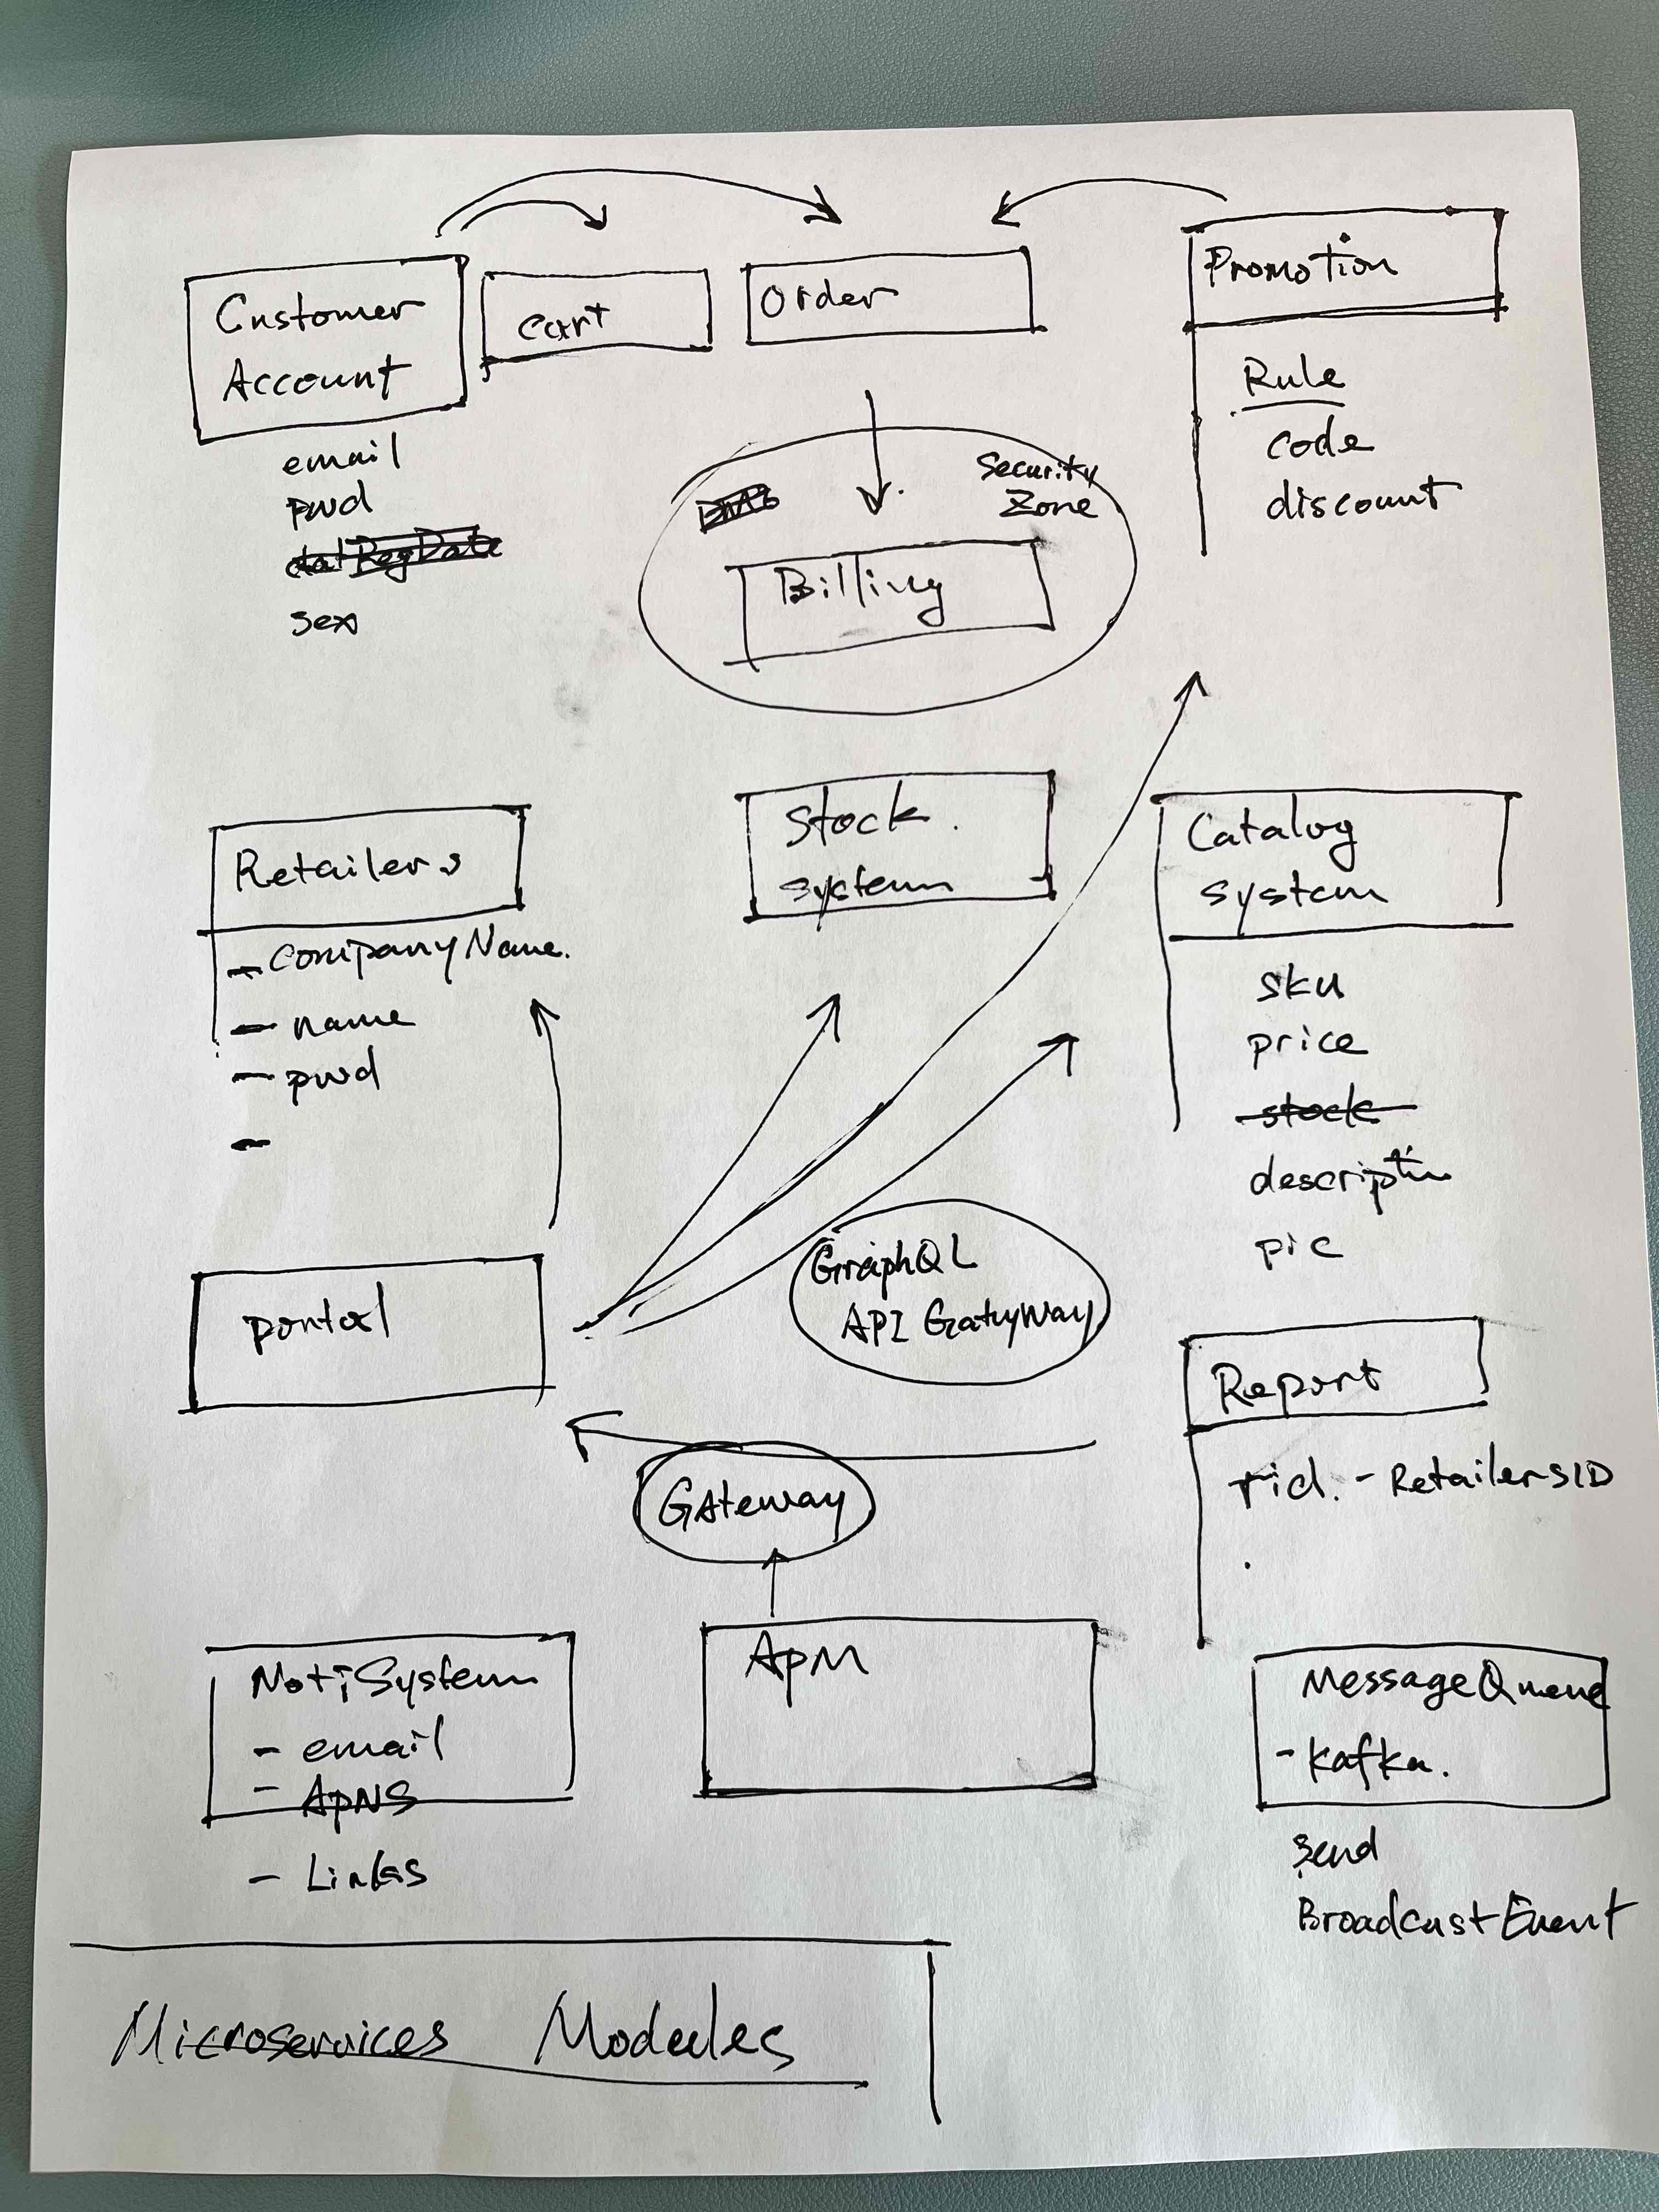 Customer
Account
email
pwd
RegDate
sex
cart
Order
Promotion
Rule
code
discount
Security
Zone
Billing
Retailers
- companyName.
- name
- pwd
-
Stock.
system
Catalog
system
sku
price
stock
descriptin
pic
portal
GraphQL
API GatuyWay
Report
rid. - RetailersID
.
GAteway
NotiSystem
- email
- ApNS
- Links
ApM
MessageQueue
- kafka.
send
BroadcastEvent
Microservices Modules